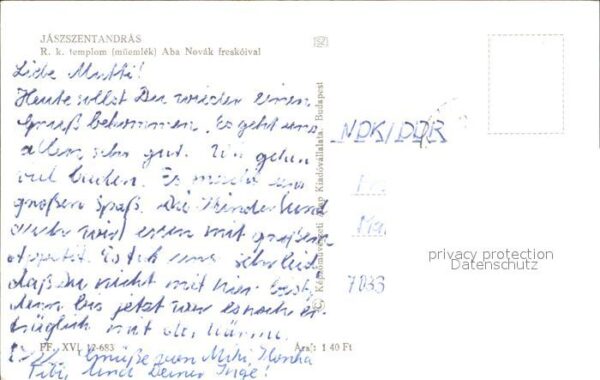 JÁSZSZENTANDRÁS
R. k. templom (műemlék) Aba Novák freskóival
Liebe Mutti!
Heute sollst Du wieder einen
Gruß bekommen. Es geht uns
allen sehr gut. Wir gehen
viel baden. Es macht uns
großen Spaß. Die Kinder (und
auch wir) essen mit großem
Appetit. Es tut uns sehr leid
daß Du nicht mit hier bist,
denn bis jetzt war es noch er-
träglich mit der Wärme.
Grüße von Miki, Ilonka
Tibi, und Deiner Inge!
PF. XVI. 12-683
Ára: 1 40 Ft
Képzőművészeti Alap Kiadóvállalata, Budapest
NDK/DDR
7033
privacy protection
Datenschutz